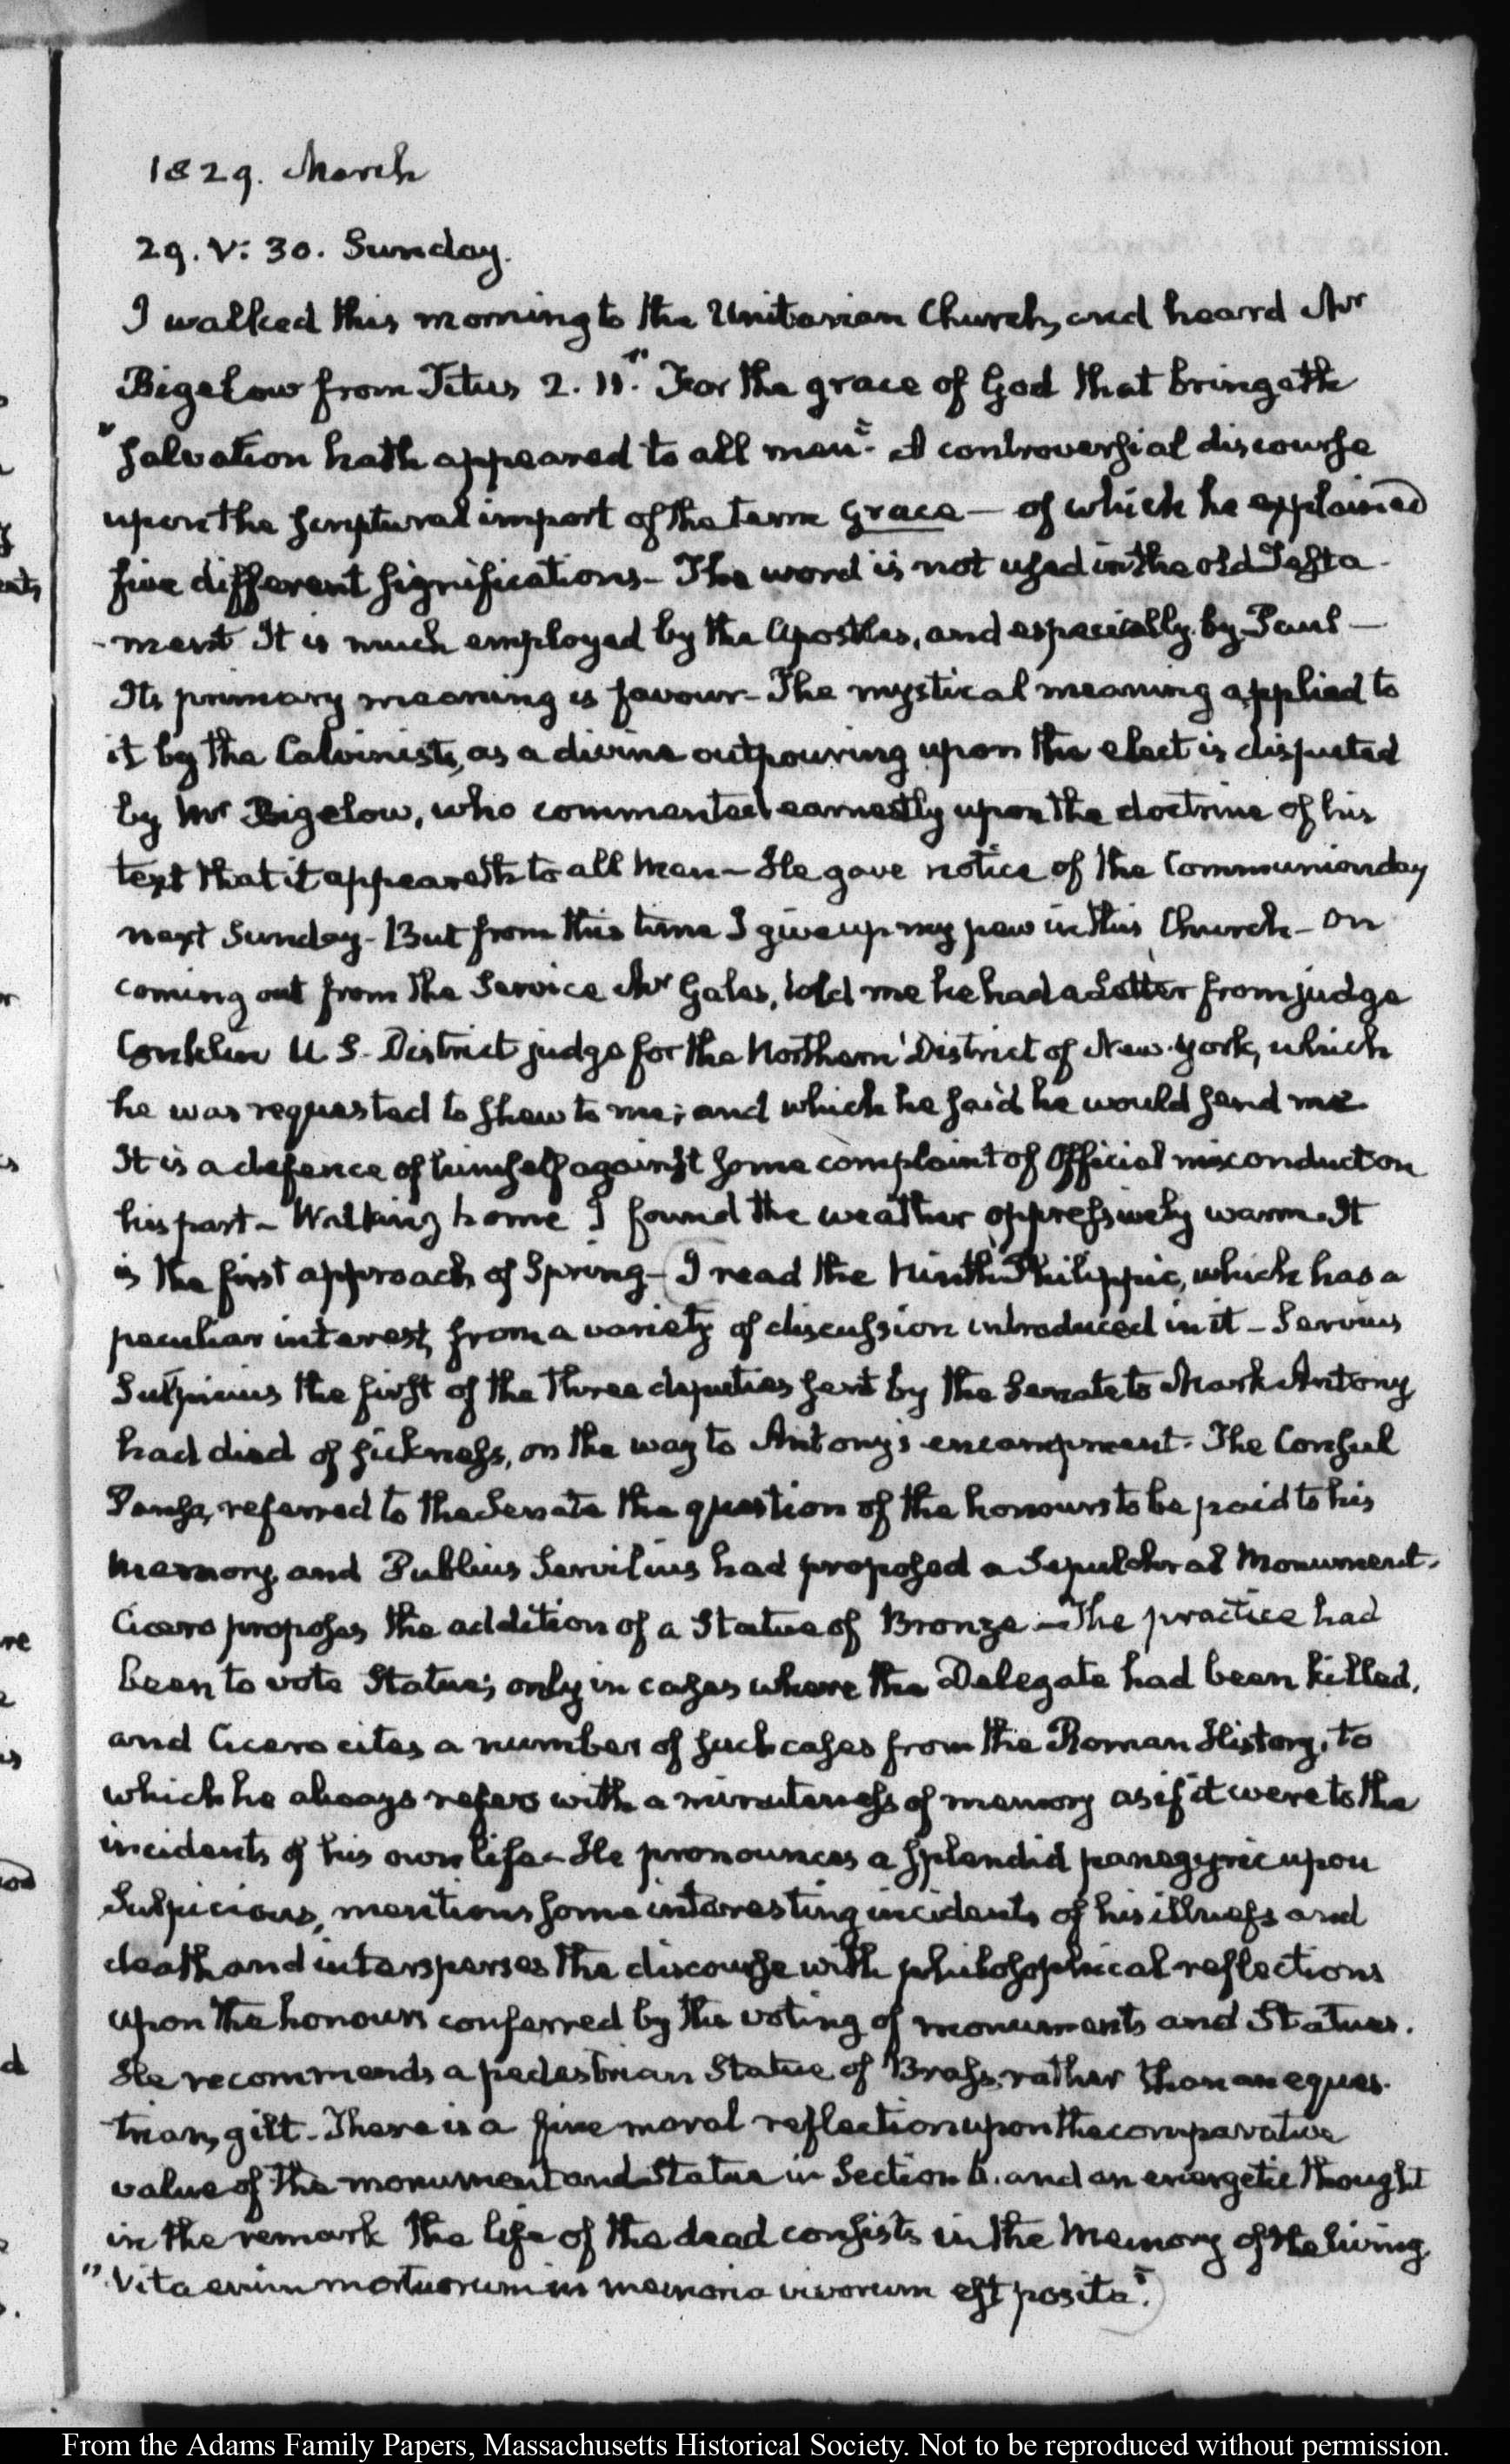 1829. March
29. V: 30. Sunday.
I walked this morning to the Unitarian Church, and heard Mr
Bigelow from Titus 2. 11. "For the grace of God that bringeth
"salvation hath appeared to all men". A controversial discourse
upon the scriptural import of the term grace — of which he explained
five different significations — The word is not used in the old Testa-
-ment It is much employed by the Apostles, and especially by Paul —
Its primary meaning is favour — The mystical meaning applied to
it by the Calvinists, as a divine outpouring upon the elect is disputed
by Mr Bigelow, who commented earnestly upon the doctrine of his
text that it appeareth to all men — He gave notice of the Communion day
next Sunday — But from this time I give up my pew in this Church — On
coming out from the Service Mr Gales, told me he had a Letter from judge
Conklin U S. District judge for the Northern District of New-York, which
he was requested to shew to me; and which he said he would send me
It is a defence of himself against some complaint of Official misconduct on
his part — Walking home I found the weather oppressively warm. It
is the first approach of Spring — (I read the ninth Philippic, which has a
peculiar interest, from a variety of discussion introduced in it — Servius
Sulpicius the first of the three deputies sent by the Senate to Mark Antony
had died of sickness, on the way to Antony's encampment. The Consul
Pansa, referred to the Senate the question of the honours to be paid to his
memory, and Publius Servilius had proposed a Sepulchral Monument.
Cicero proposes the addition of a Statue of Bronze — The practice had
been to vote Statues, only in cases where the Delegate had been killed,
and Cicero cites a number of such cases from the Roman History, to
which he always refers with a minuteness of memory as if it were to the
incidents of his own life — He pronounces a splendid panegyric upon
Sulpicius, mentions some interesting incidents of his illness and
death and intersperses the discourse with philosophical reflections
upon the honours conferred by the voting of monuments and Statues.
He recommends a pedestrian Statue of Brass, rather than an eques-
trian, gilt. There is a fine moral reflection upon the comparative
value of the monument and Statue in Section 6. and an energetic thought
in the remark the life of the dead consists in the Memory of the living,
"Vita enim mortuorum in memoria vivorum est posita".)
From the Adams Family Papers, Massachusetts Historical Society. Not to be reproduced without permission.